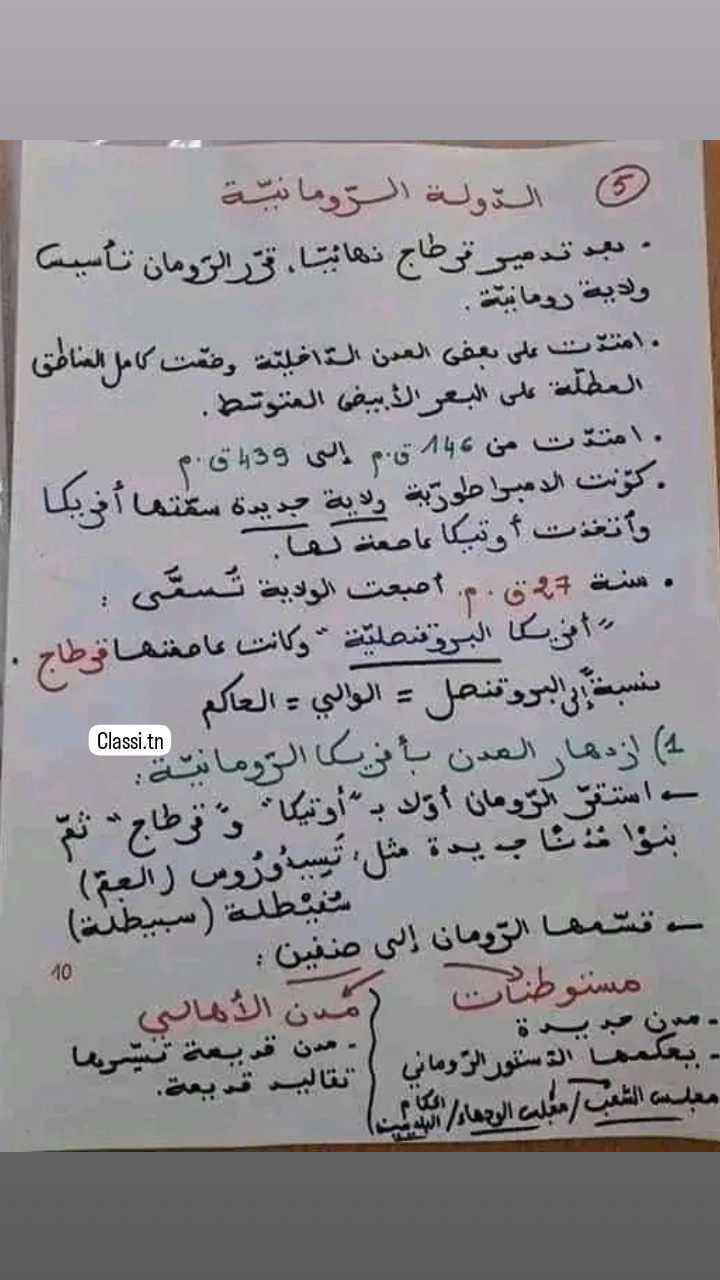 5 الدّولة الرّومانيّة
- بعد تدمير قرطاج نهائيّا، قرّر الرّومان تأسيس
ولاية رومانيّة.
. امتدّت على بعض المدن الدّاخليّة وضمّت كامل المناطق
المطلّة على البحر الأبيض المتوسّط.
. امتدّت من 146 ق.م إلى 439 ق.م
. كوّنت الامبراطوريّة ولاية جديدة سمّتها أفريكا
وأتخذت أوتيكا عاصمة لها.
. سنة 27 ق.م. أصبحت الولاية تُسمَّى :
"أفريكا البروقنصليّة" وكانت عاصمتها قرطاج .
نسبةً إلى البروقنصل = الوالي = الحاكم
Classi.tn
1) ازدهار المدن بأفريكا الرّومانيّة :
← استقرّ الرّومان أوّلا بـ "أوتيكا" و"قرطاج" ثمّ
بنوْا مُدُنًا جديدة مثل: تيسدروس (الجمّ)
سُفيْطلة (سبيطلة)
← قسّمها الرّومان إلى صنفين :
10
مستوطنات
- مدن جديدة
- يحكمها الدّستور الرّوماني
مجلس الشّعب / مجلس الوجهاء / الحكّام البلديّين
مُدن الأهالي
- مدن قديمة تسيّرها
تقاليد قديمة.